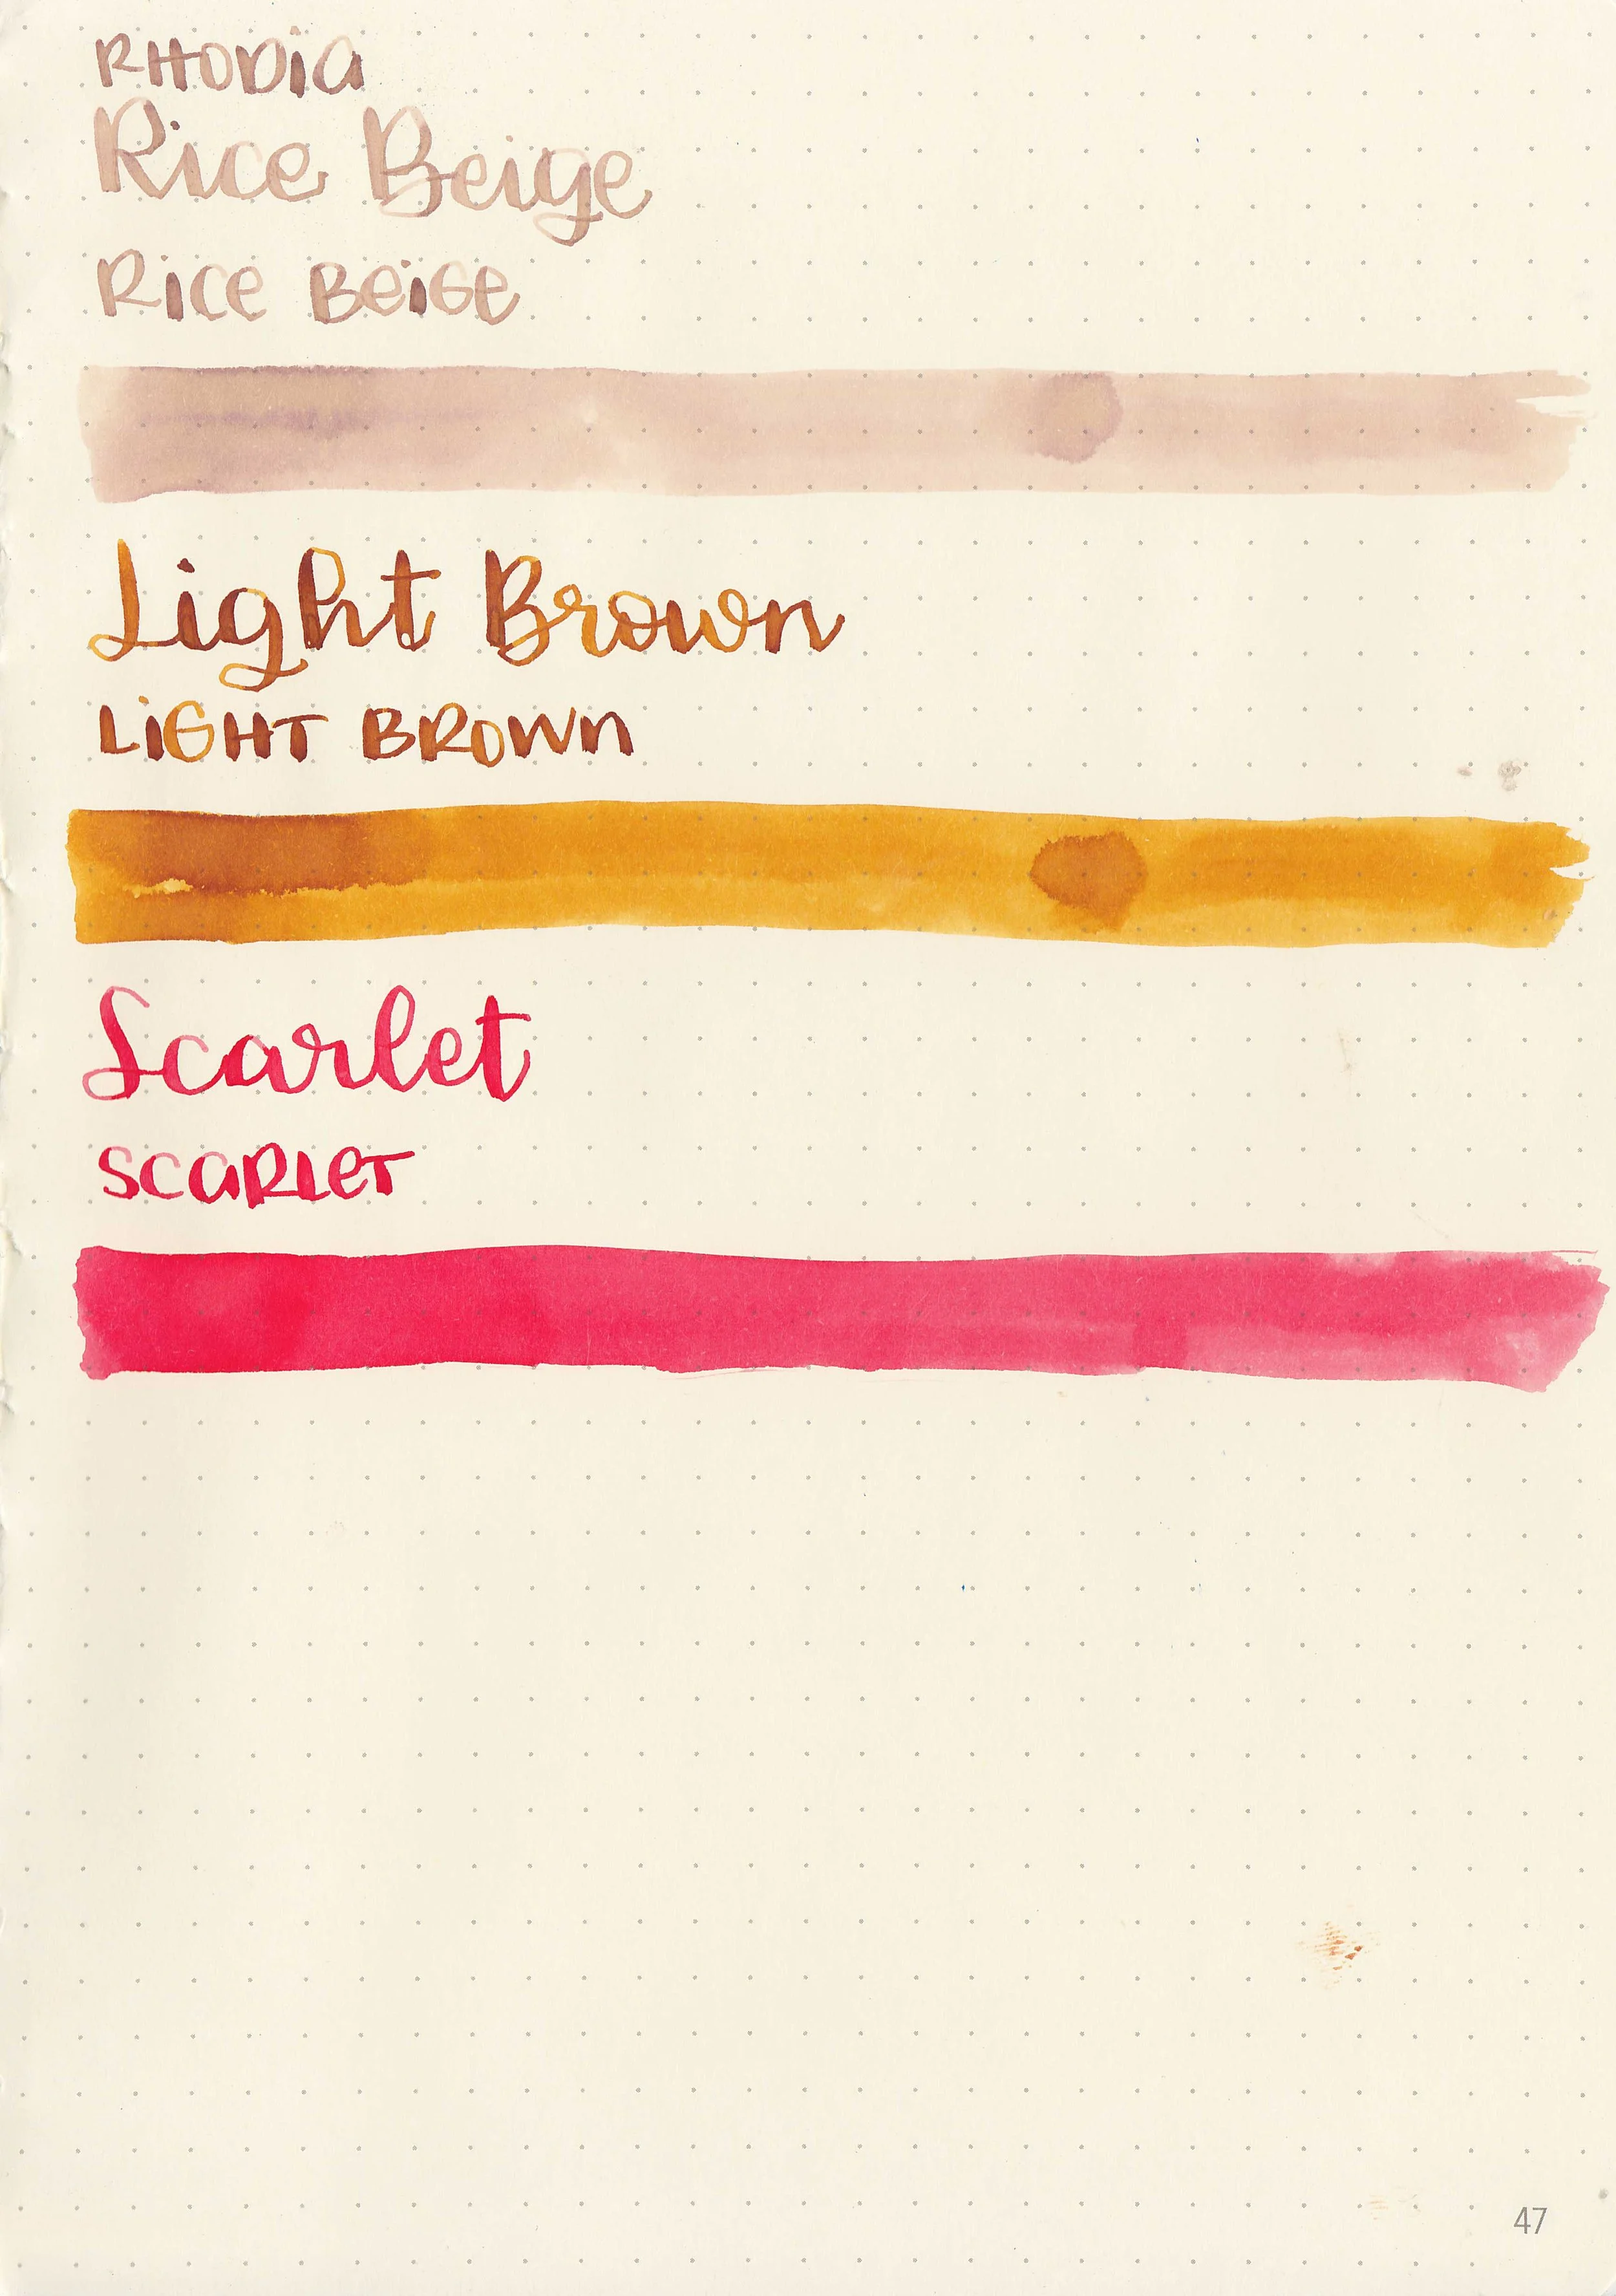 RHODIA
Rice Beige
Rice Beige
Light Brown
LIGHT BROWN
Scarlet
SCARLET
47